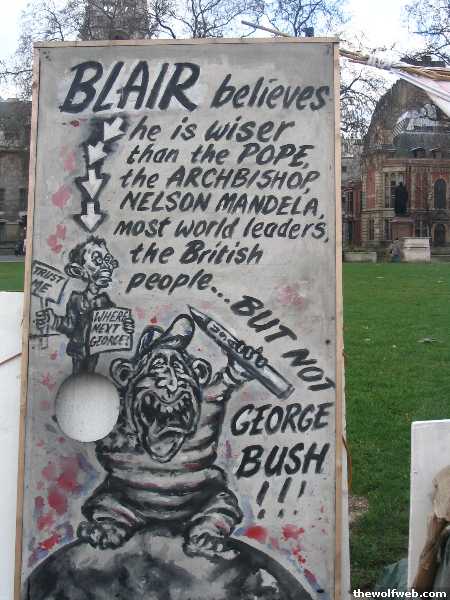 BLAIR believes
he is wiser
than the POPE,
the ARCHBISHOP,
NELSON MANDELA,
most world leaders,
the British
people...
BUT NOT
GEORGE
BUSH
!!!
TRUST
ME
WHERE
NEXT
GEORGE?
thewolfweb.com